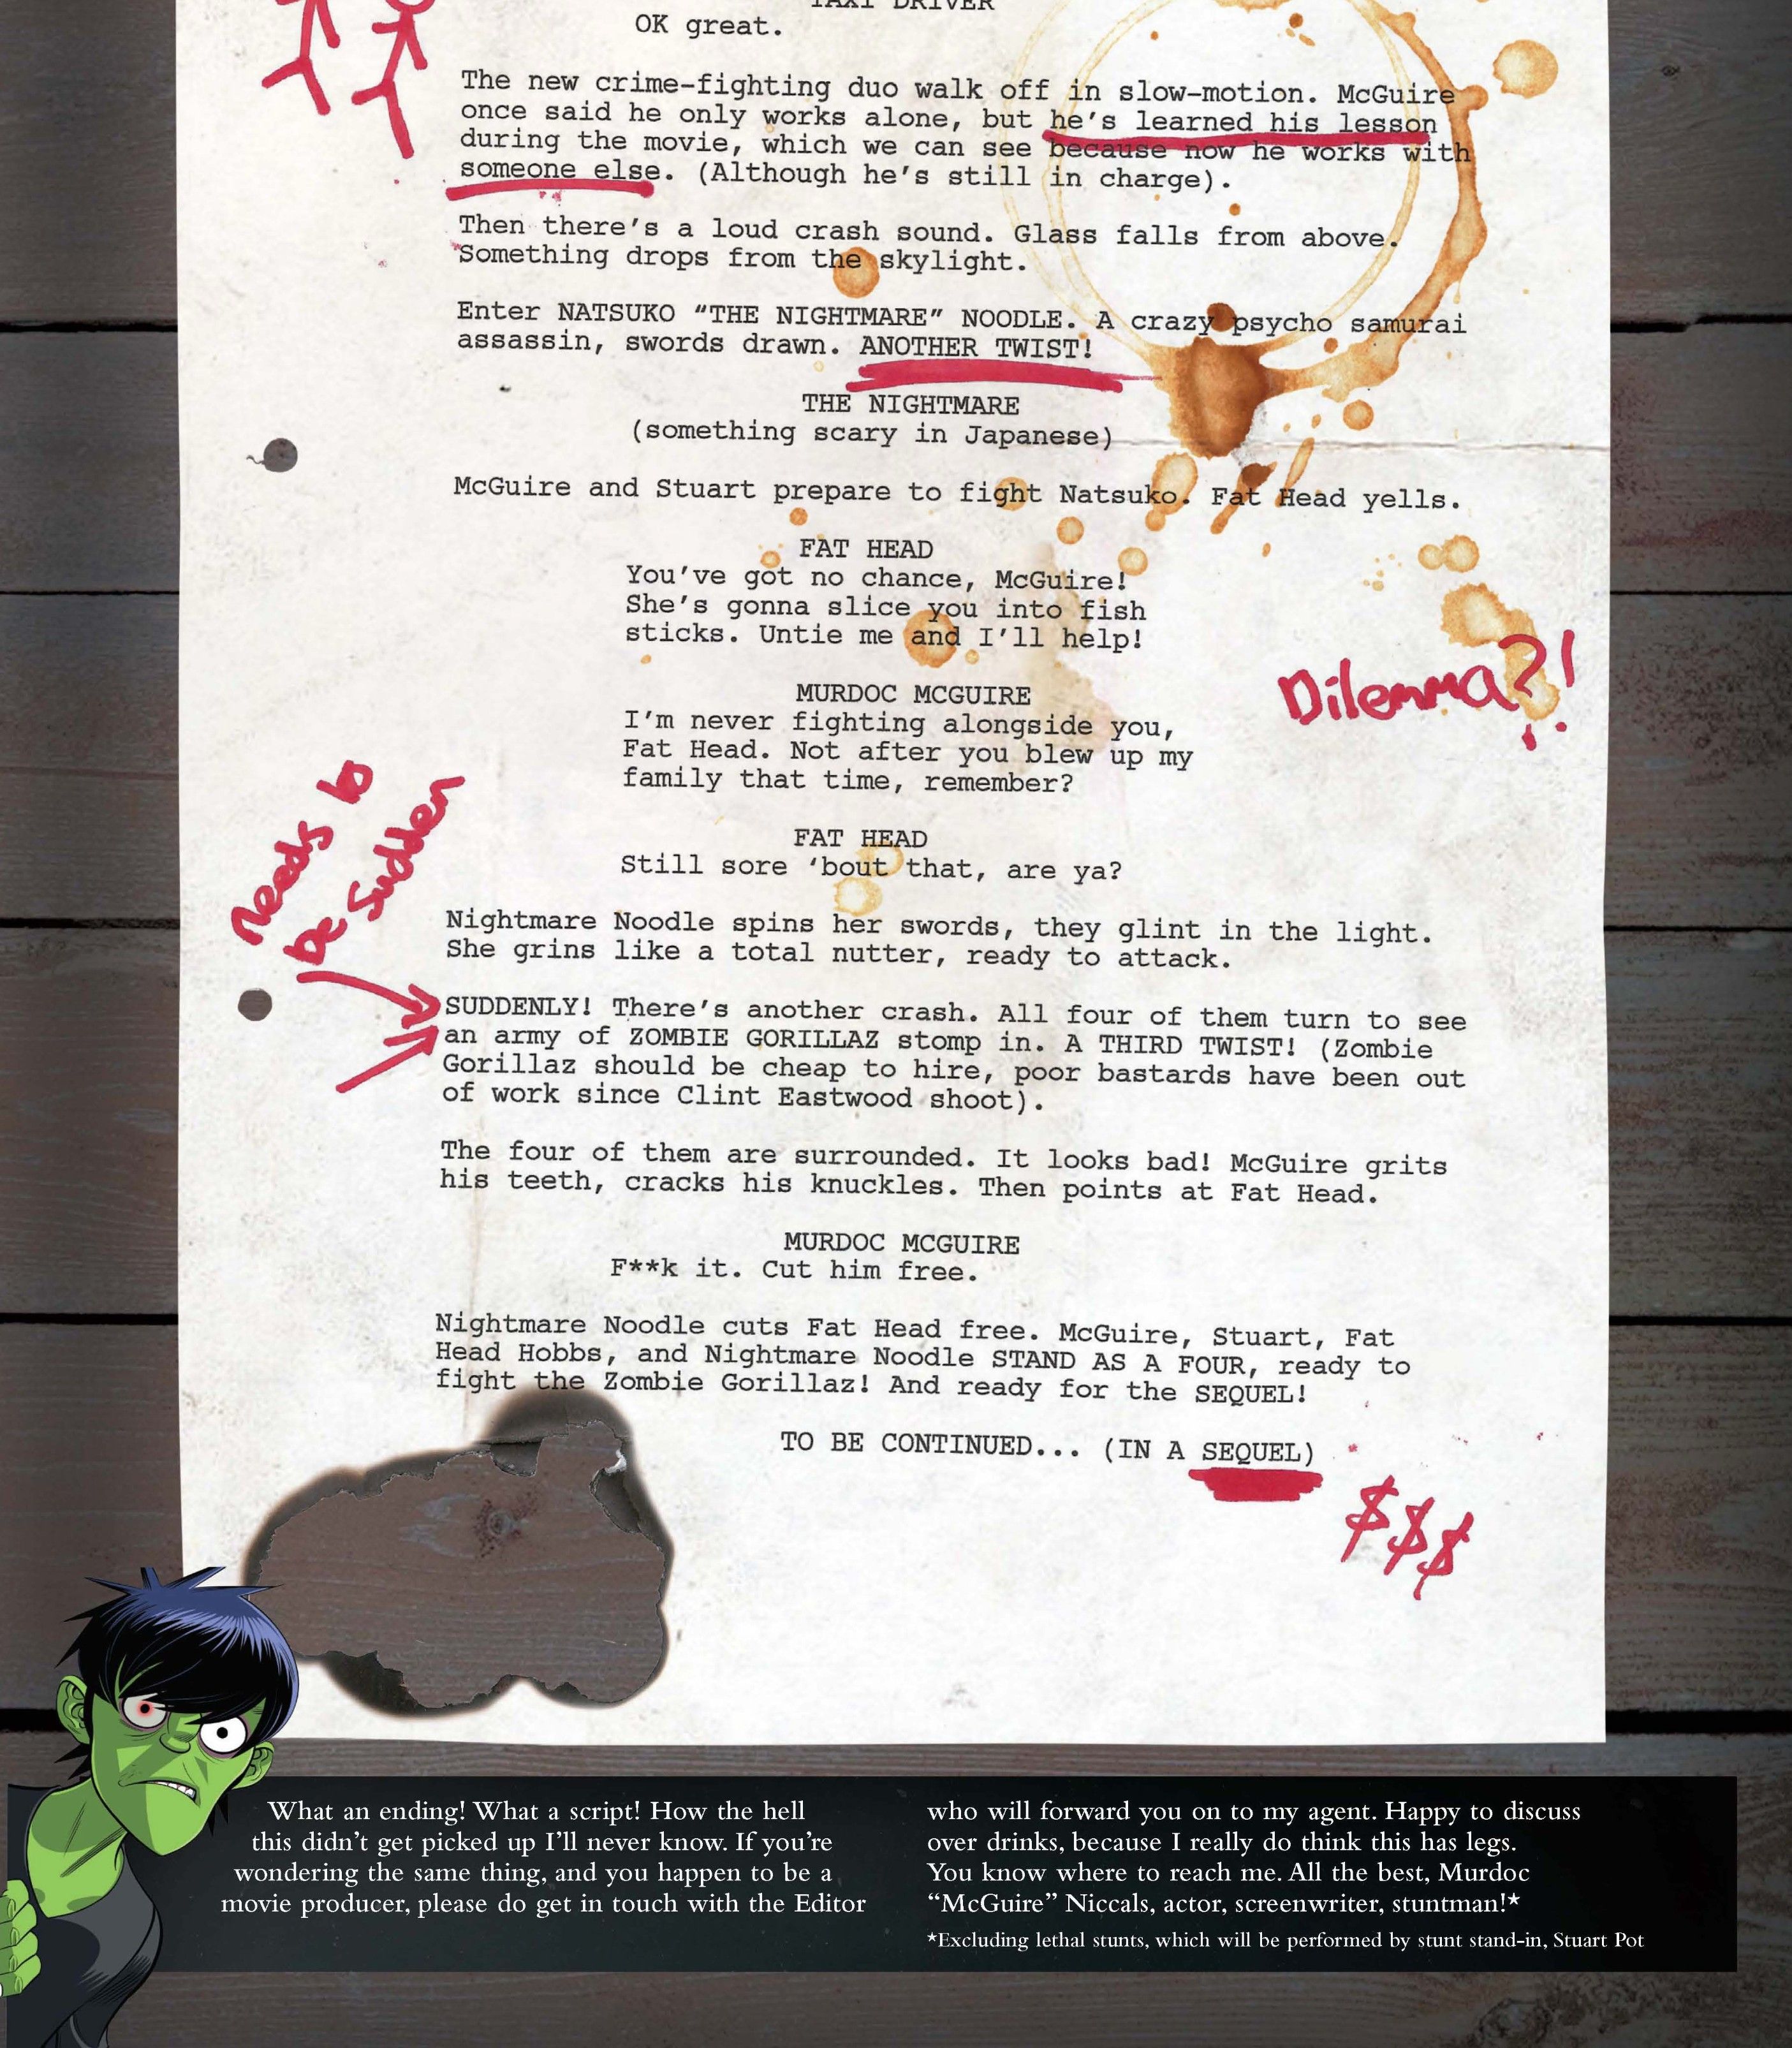 TAXI DRIVER
OK great.
The new crime-fighting duo walk off in slow-motion. McGuire
once said he only works alone, but he's learned his lesson
during the movie, which we can see because now he works with
someone else. (Although he's still in charge).
Then there's a loud crash sound. Glass falls from above.
Something drops from the skylight.
Enter NATSUKO "THE NIGHTMARE" NOODLE. A crazy psycho samurai
assassin, swords drawn. ANOTHER TWIST!
THE NIGHTMARE
(something scary in Japanese)
McGuire and Stuart prepare to fight Natsuko. Fat Head yells.
FAT HEAD
You've got no chance, McGuire!
She's gonna slice you into fish
sticks. Untie me and I'll help!
Dilemma?!
MURDOC MCGUIRE
I'm never fighting alongside you,
Fat Head. Not after you blew up my
family that time, remember?
needs to
be sudden
FAT HEAD
Still sore 'bout that, are ya?
Nightmare Noodle spins her swords, they glint in the light.
She grins like a total nutter, ready to attack.
SUDDENLY! There's another crash. All four of them turn to see
an army of ZOMBIE GORILLAZ stomp in. A THIRD TWIST! (Zombie
Gorillaz should be cheap to hire, poor bastards have been out
of work since Clint Eastwood shoot).
The four of them are surrounded. It looks bad! McGuire grits
his teeth, cracks his knuckles. Then points at Fat Head.
MURDOC MCGUIRE
F**k it. Cut him free.
Nightmare Noodle cuts Fat Head free. McGuire, Stuart, Fat
Head Hobbs, and Nightmare Noodle STAND AS A FOUR, ready to
fight the Zombie Gorillaz! And ready for the SEQUEL!
TO BE CONTINUED... (IN A SEQUEL)
$$$
What an ending! What a script! How the hell
this didn't get picked up I'll never know. If you're
wondering the same thing, and you happen to be a
movie producer, please do get in touch with the Editor
who will forward you on to my agent. Happy to discuss
over drinks, because I really do think this has legs.
You know where to reach me. All the best, Murdoc
"McGuire" Niccals, actor, screenwriter, stuntman!*
*Excluding lethal stunts, which will be performed by stunt stand-in, Stuart Pot